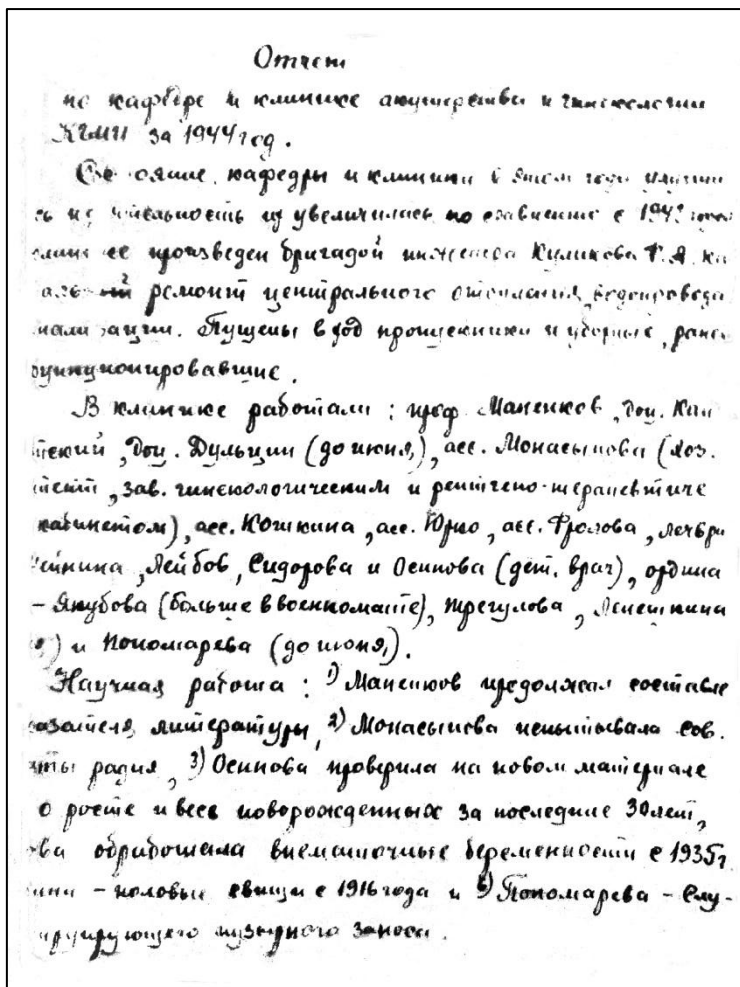 Отчет
по кафедре и клинике акушерства и гинекологии
КГМИ за 1944 год.
кафедры и клиники в этом году
увеличилась по сравнению с
произведен бригадой инженера Куликова Г. А.
ремонт центрального отопления, водопровода
Пущены в ход пропускники и уборные, ранее
функционировавшие.
В клинике работали: проф. Маненков, доц.
доц. Дульцин (до июня), асс. Монасыпова (
зав. гинекологическим и рентгено-терапевтиче
кабинетом), асс. Кошкина, асс. Юрко, асс. Фролова,
Лейбов, Сидорова и Осипова (дет. врач), ордина
- Якубова (больше в военкомате), Трегулова,
и Пономарева (до июня).
Научная работа: 1) Маненков продолжал составле
литературы, 2) Монасыпова испытывала сов.
радия, 3) Осипова проверила на новом материале
о росте и весе новорожденных за последние 30 лет,
ва обработала внематочные беременности с 1935 г.
- половые свищи с 1916 года и 6) Пономарева - слу-
пузырного заноса.